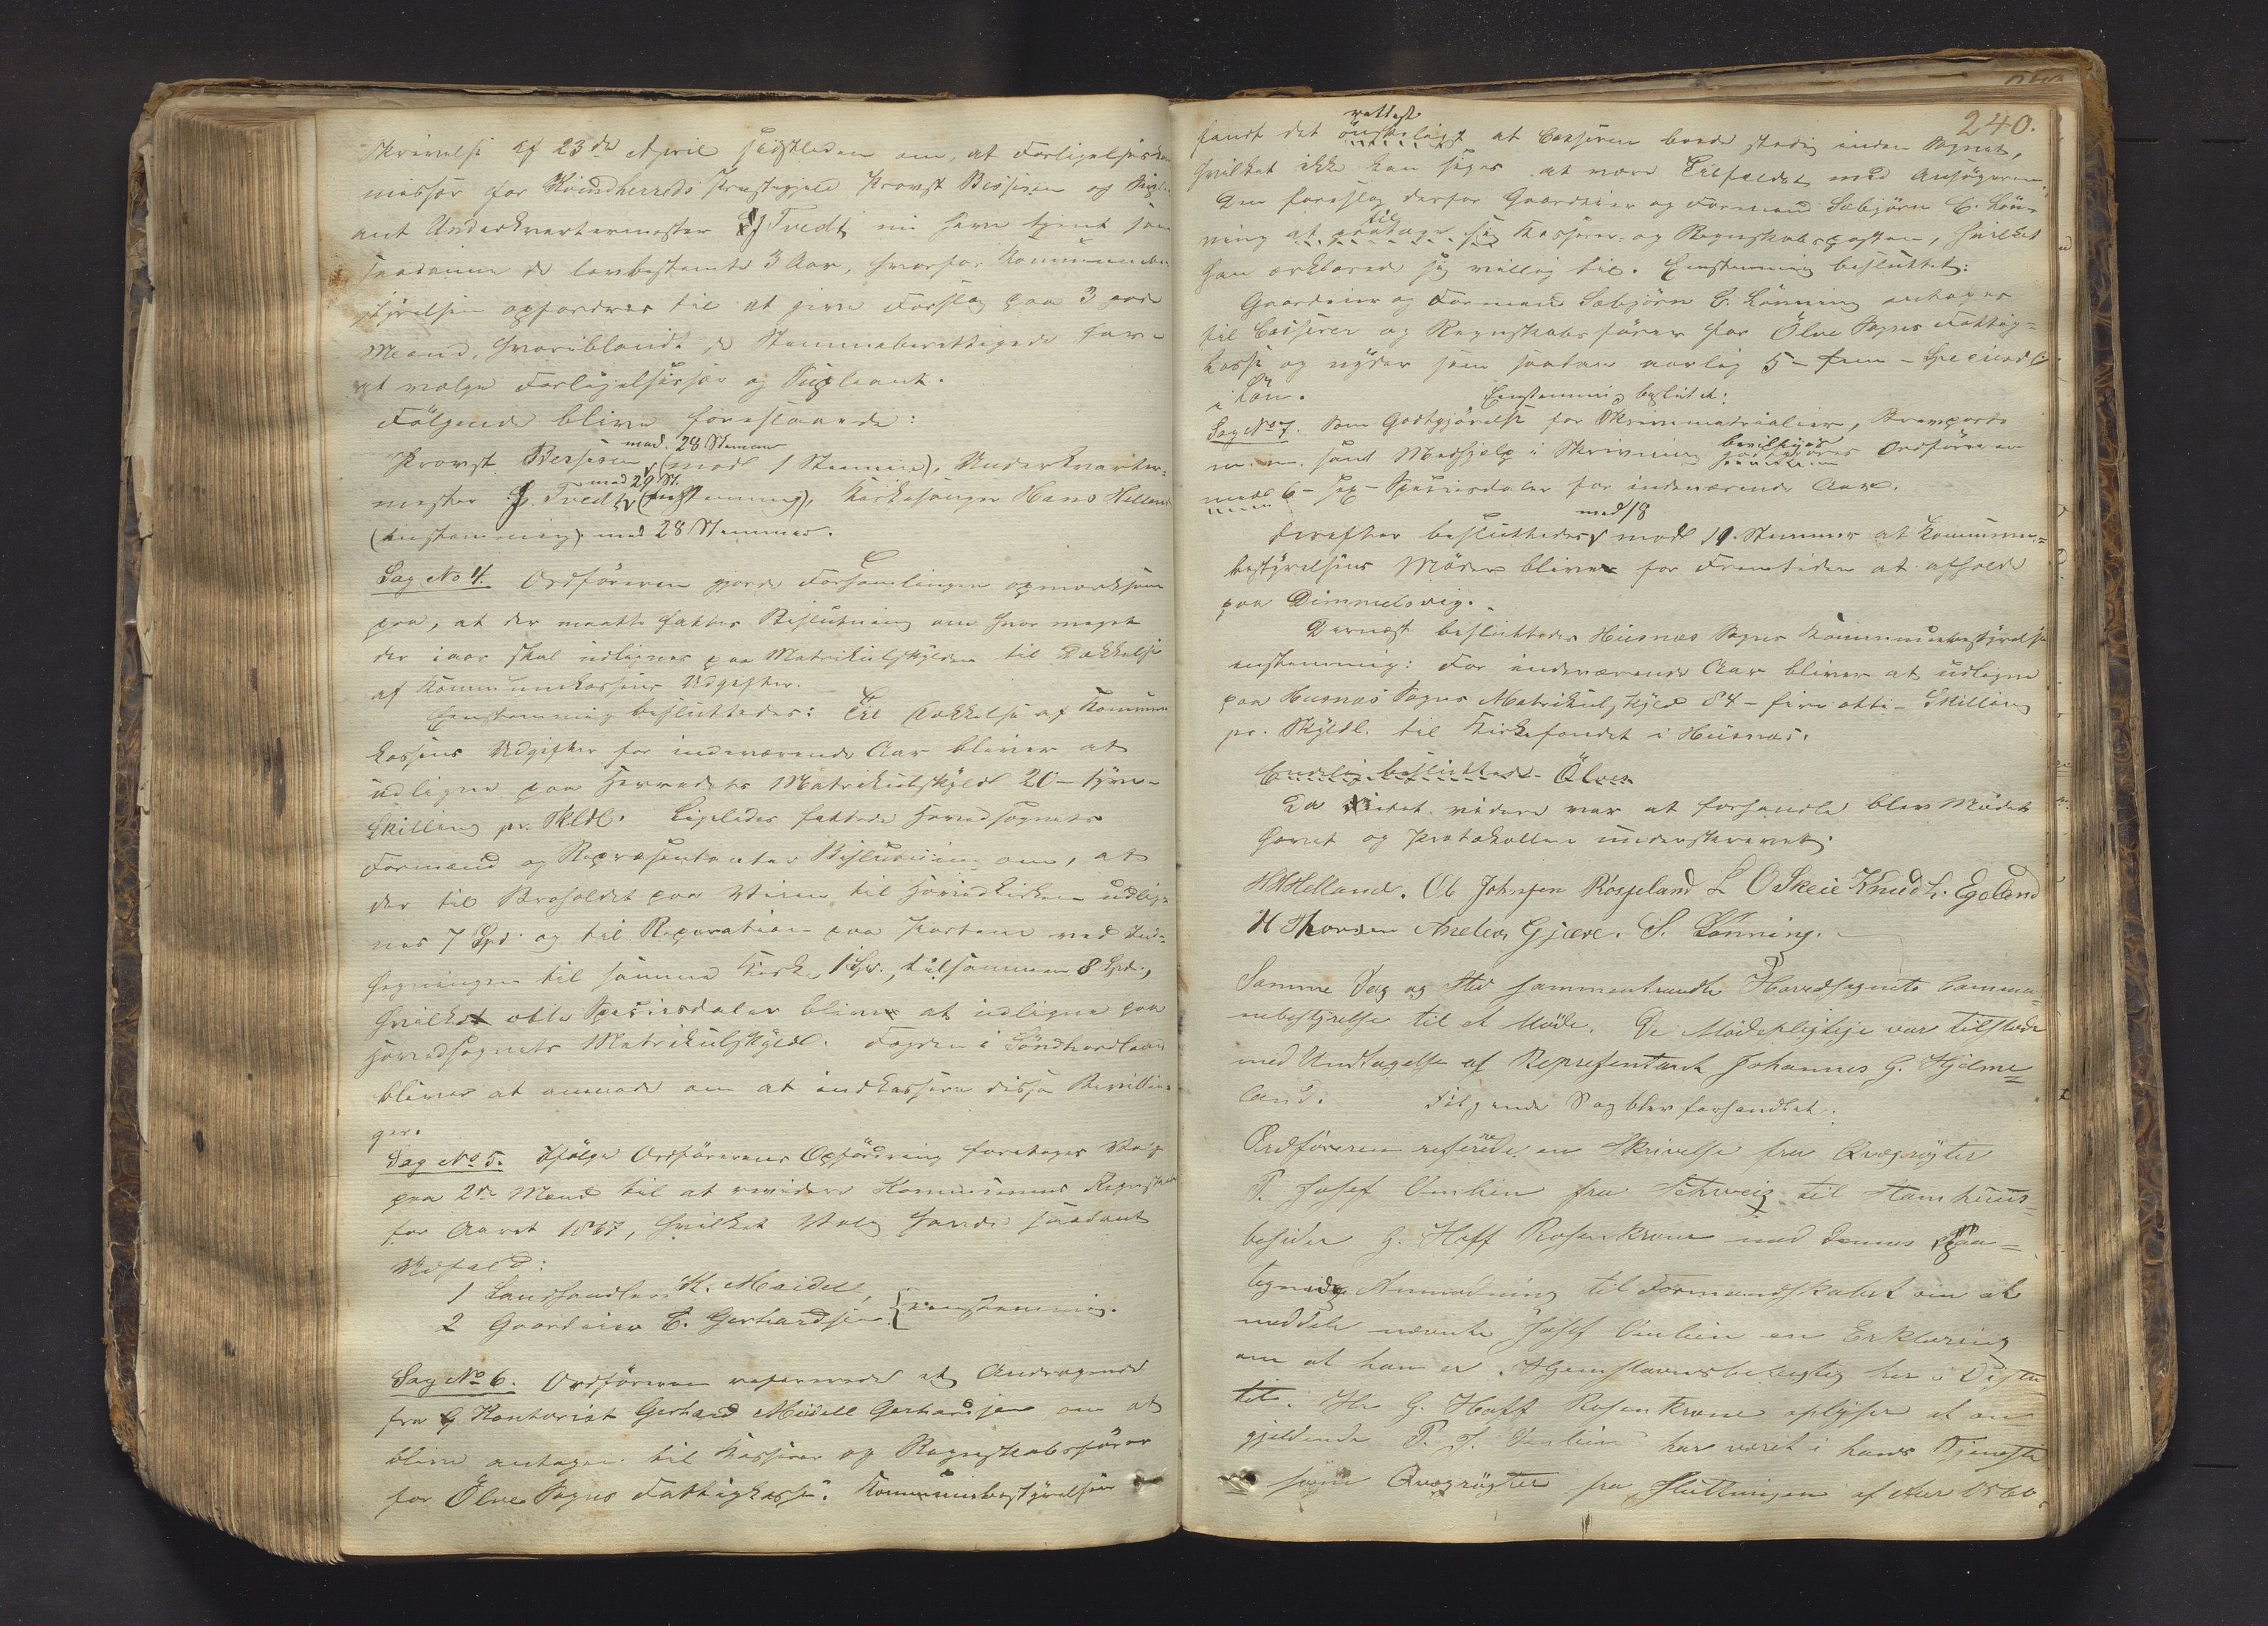 Skrivelse af 23de April sidstleden om, at Forligelseskom
missær for Kvindherreds Præstegjeld Provst Bessesen og Suple
ant Underkvartermester J Tvedt nu have tjent som
saadanne de lovbestemte 3 Aar, hvorfor Kommunebe
styrelsen opfordres til at give Forslag paa 3 gode
Mænd, hvoriblandt de Stemmeberettigede have
at vælge Forligelseskom og Supleant.
Følgende bliver foreslaaede:
med 28 Stemmer
Provst Bessesen (mod 1 Stemme), Underkvarter-
med 29 St.
mester J. Tvedt (enstemmig), Kirkesanger Hans Helland
(enstemmig) med 28 Stemmer.
Sag No 4. Ordføreren gjorde Forsamlingen opmærksom
paa, at der maatte fattes Beslutning om hvor meget
der iaar skal udlignes paa Matrikulskylden til Dækkelse
af Kommunekassens Udgifter.
Eenstemmig besluttedes: Til Dækkelse af Kommune
kassens Udgifter for indeværende Aar bliver at
udligne paa Herredets Matrikulskyld 20 - tyve -
Skilling pr. Skldl. Ligeledes fattede Hovedsognets
Formænd og Repræsentanter Beslutning om, at
der til Broholdet paa Veien til Hovedkirken udlig-
nes 7 Spd. og til Reparation paa Portene ved Ind-
hegningen til samme Kirke 1 Sp., tilsammen 8 Spd.,
hvilket otte Speciesdaler bliver at udligne paa
Hovedsognets Matrikulskyld. Fogden i Søndhordland
bliver at anmode om at indkassere disse Bevillin-
ger.
Sag No 5. Ifølge Ordførerens Opfordring foretoges Valg
paa 2de Mænd til at revidere Kommunens Regnskab
for Aaret 1867, hvilket Valg havde saadant
Udfald:
1 Landhandler K. Meidell,
2 Gaardeier E. Gerhardsen } eenstemmig.
Sag No 6. Ordføreren refererede et Andragende
fra Kontorist Gerhard Meidell Gerhardsen om at
blive antagen til Kasserer og Regnskabsfører
for Ølve Sogns Fattigkasse. Kommunebestyrelsen
240.
rettest
fandt det ønskeligt at Casseren boede stedig inden Sognet,
hvilket ikke kan siges at være Tilfældet med Ansøgeren.
Den foreslog derfor Gaardeier og Formand Sæbjørn E. Løn-
til
ning at paatage sig Kasserer- og Regnskabsposten, hvilket
han erklærede sig villig til. Eenstemmig besluttet:
Gaardeier og Formand Sæbjørn E. Lønning antages
til Casserer og Regnskabsfører for Ølve Sogns Fattig-
kasse og nyder som saadan aarlig 5 - fem - Speciedl
i Løn.
Eenstemmig besluttet:
Sag No 7. Som Godtgjørelse for Skrivematerialier, Brevporto
bevilges
m. m. samt Medhjelp i Skrivning godtgjøres Ordføreren
med 6 - sex - Speciesdaler for indeværende Aar.
med 18
Derefter besluttedes mod 11 Stemmer at Kommune-
bestyrelsens Møder bliver for Fremtiden at afholde
paa Dimmelsvig.
Dernæst besluttedes Husnæs Sogns Kommunebestyrelse
enstemmig: For indeværende Aar bliver at udligne
paa Husnæs Sogns Matrikulskyld 84 - fire otti - Skilling
pr. Skyldl. til Kirkefondet i Husnæs.
Endelig besluttede Ølves
Da Intet videre var at forhandle blev Mødet
hævet og Protokollen underskrevet.
HHHelland. Ol Johnsen Røsseland L O Skeie Knud L. Egeland
H Thorsen Anders Gjære. S. Lønning.
Samme Dag og Sted sammentraadte Hovedsognets Commu-
nebestyrelse til et Møde. De Mødepligtige var tilstede
med Undtagelse af Representant Johannes G. Hjelme-
land. Følgende Sag blev forhandlet.
Ordføreren refererede en Skrivelse fra Qvægrøgter
P. Josef Vonlien fra Schweiz til Stamhuus-
besidder G. Hoff Rosenkrone med dennes Paa-
tegnede Anmodning til Formandskabet om at
meddele nævnte Josef Vonlien en Erklæring
om at han er Hjemstavnsberegtig her i Distri
tit. Hr G. Hoff Rosenkrone oplyser at an
gjeldende P. J. Vonlien har været i hans Tjeneste
som Qvægrøgter fra Slutningen af Aar 1860